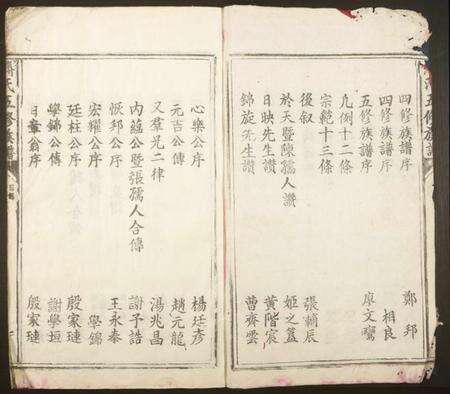 四修族譜序 鄭邦
四修族譜序 相良
五修族譜序 廖文鸞
凡例十二條
宗範十三條
後叙 張輔辰
於天暨陳孺人讚 姬之簋
日映先生讚 黄階宸
錦旋先生讚 曹齊雲
心樂公序 楊廷彥
元吉公傳 趙元龍
又羣光二律 湯兆昌
內蘊公暨張孺人合傳 謝予誥
恢邦公序 王永泰
宏耀公序 學錦
廷柱公序 殷家璉
學錦公傳 謝學垣
日章翁序 殷家璉
氏五修族譜
五修族譜